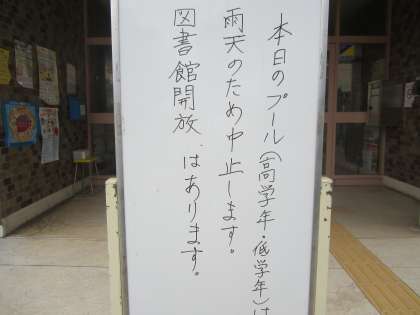 本日のプール(高学年・低学年)は
雨天のため中止します。
図書館開放はあります。